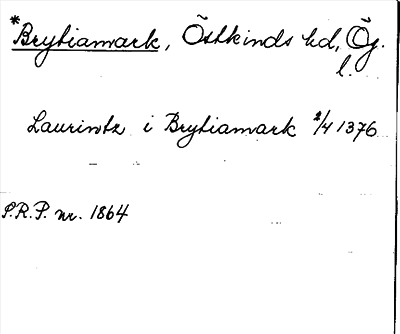 *Brytiamark, Östkinds hd, Ög.
l.
Laurintz i Brytiamark 2/4 1376
P.R.P. nr. 1864